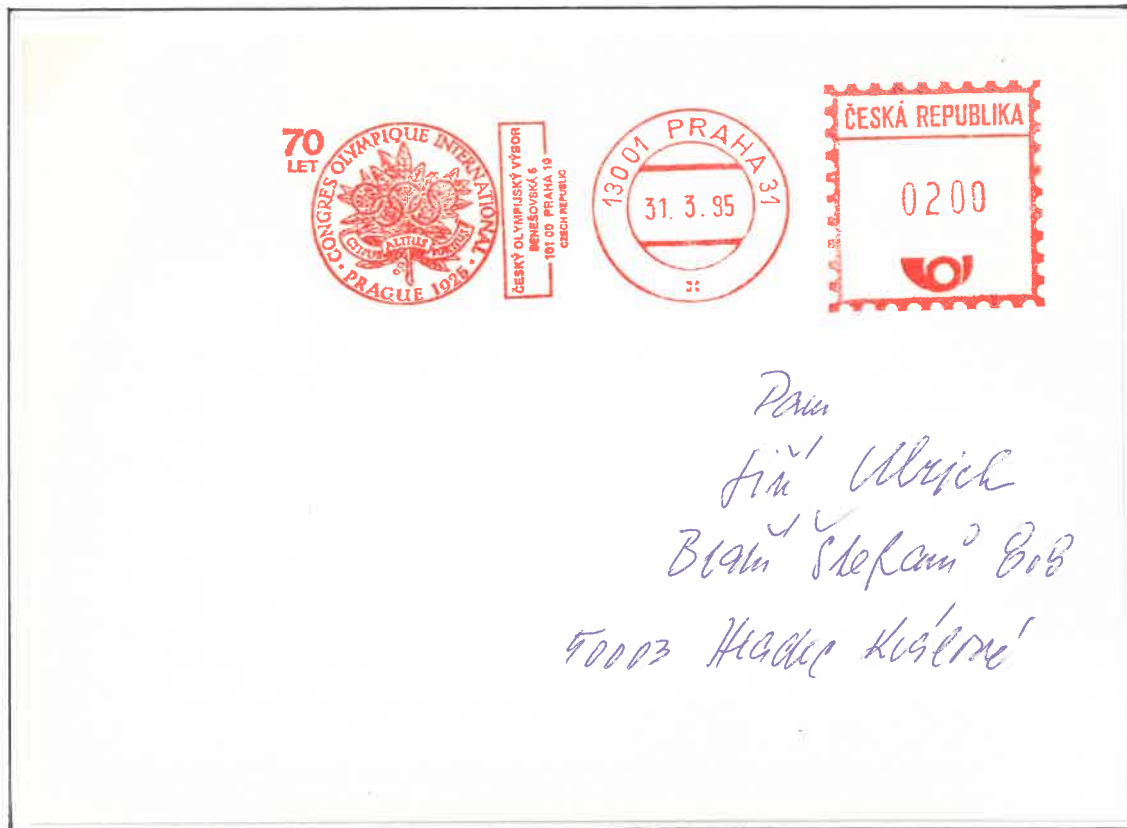 70
LET
CONGRES OLYMPIQUE INTERNATIONAL
· PRAGUE 1925 ·
CITIUS ALTIUS FORTIUS
ČESKÝ OLYMPIJSKÝ VÝBOR
BENEŠOVSKÁ 6
101 00 PRAHA 10
CZECH REPUBLIC
130 01 PRAHA 31
31. 3. 95
ČESKÁ REPUBLIKA
0200
Pan
Jiří Ulrich
Bratří Štefanů
50003 Hradec Králové